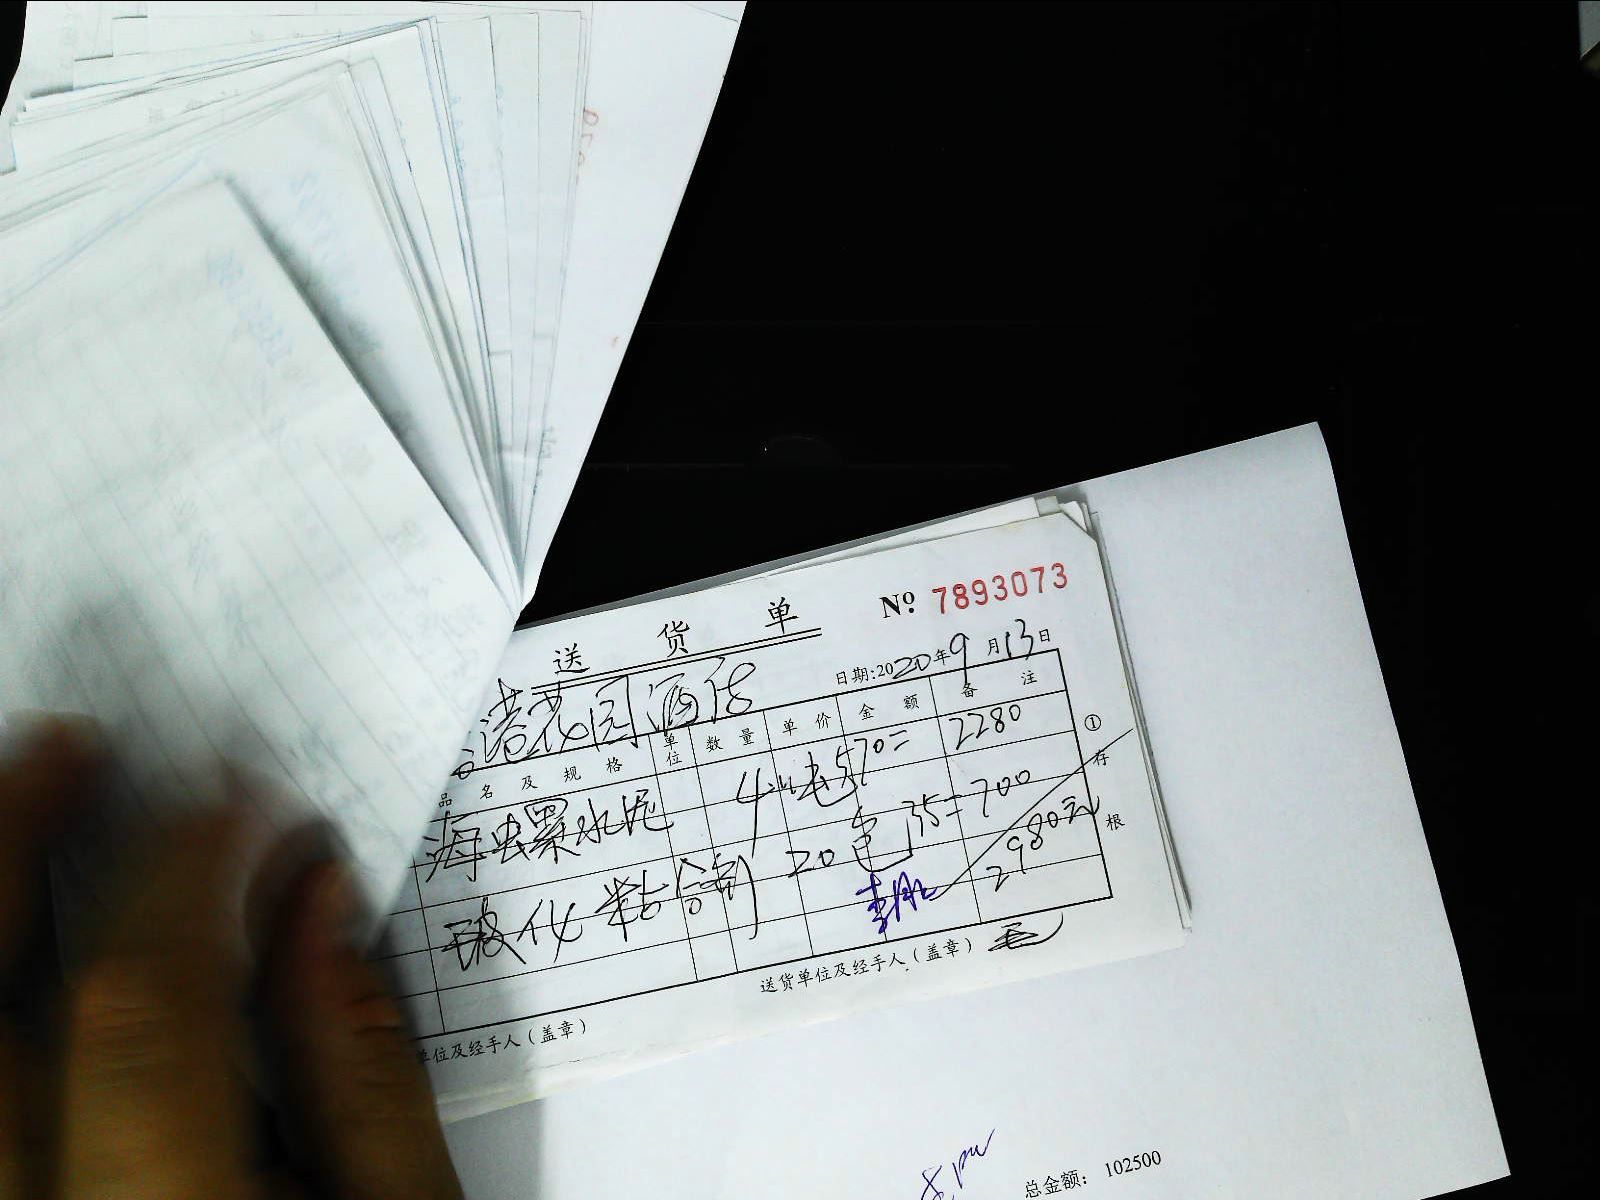 送 货 单
Nº 7893073
日期:2020年9月13日
港花园酒店
品名及规格 单位 数量 单价 金额 备注
海螺水泥 4吨 570= 2280
玻化粘合剂 20包 35=700
2980元
①存根
单位及经手人（盖章）
送货单位及经手人（盖章）
总金额： 102500